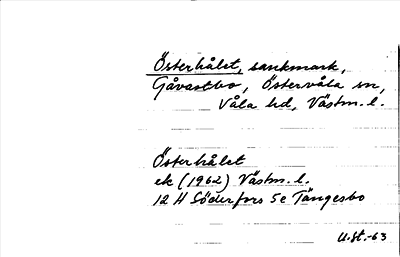 Österhålet, sankmark,
Gåvastbo, Östervåla sn,
Våla hd, Västm. l.
Österhålet
ek (1962) Västm. l.
12 H Söderfors 5e Tängesbo
U.St.-63